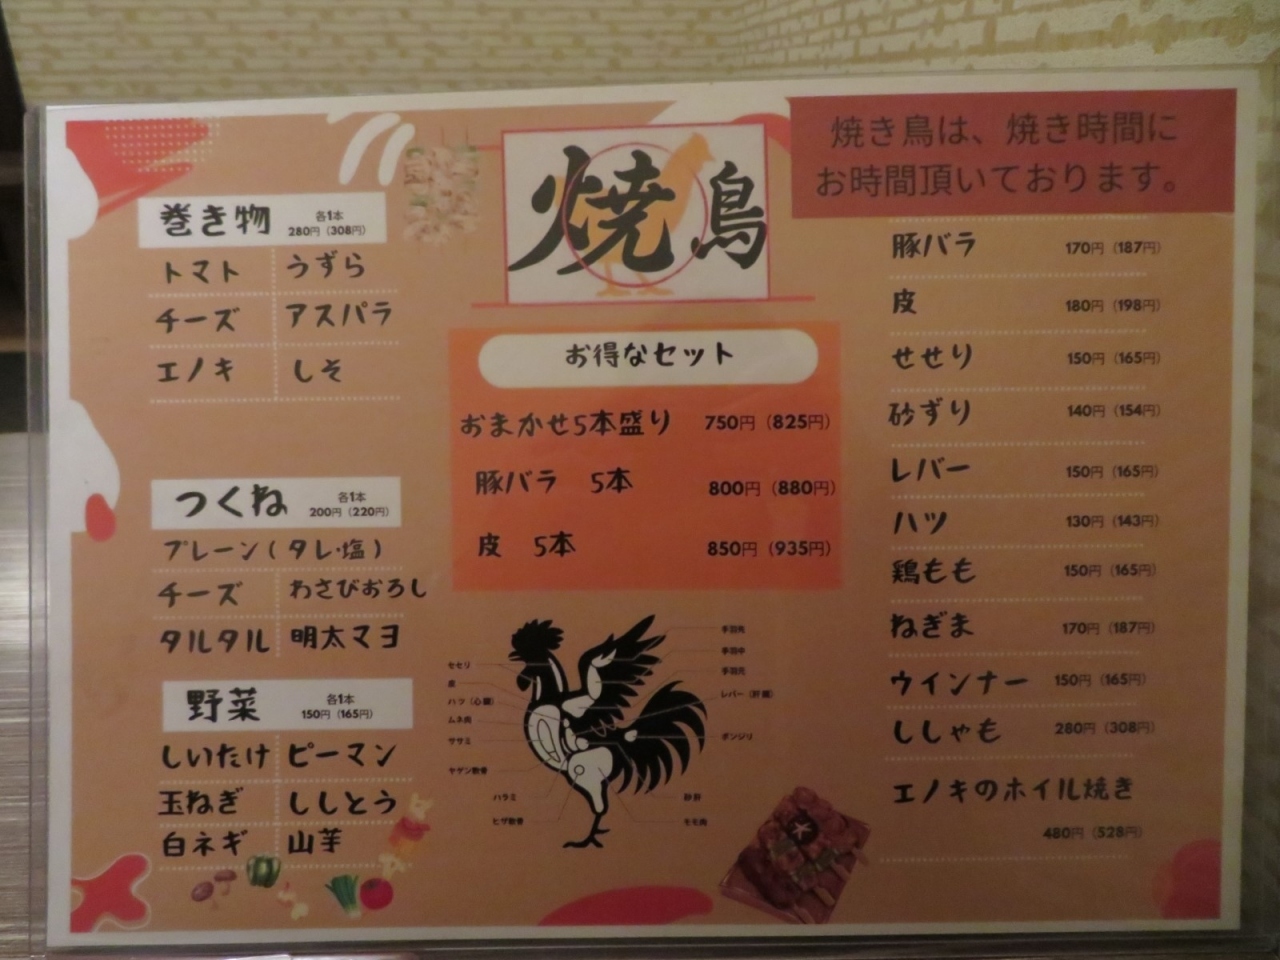 焼き鳥は、焼き時間に
お時間頂いております。
焼鳥
巻き物 各1本 280円（308円）
トマト うずら
チーズ アスパラ
エノキ しそ
つくね 各1本 200円（220円）
プレーン（タレ・塩）
チーズ わさびおろし
タルタル 明太マヨ
野菜 各1本 150円（165円）
しいたけ ピーマン
玉ねぎ ししとう
白ネギ 山芋
お得なセット
おまかせ5本盛り 750円（825円）
豚バラ 5本 800円（880円）
皮 5本 850円（935円）
セセリ
皮
ハツ（心臓）
ムネ肉
ササミ
ヤゲン軟骨
ハラミ
ヒザ軟骨
手羽先
手羽中
手羽元
レバー（肝臓）
ボンジリ
砂肝
モモ肉
豚バラ 170円（187円）
皮 180円（198円）
せせり 150円（165円）
砂ずり 140円（154円）
レバー 150円（165円）
ハツ 130円（143円）
鶏もも 150円（165円）
ねぎま 170円（187円）
ウインナー 150円（165円）
ししゃも 280円（308円）
エノキのホイル焼き
480円（528円）